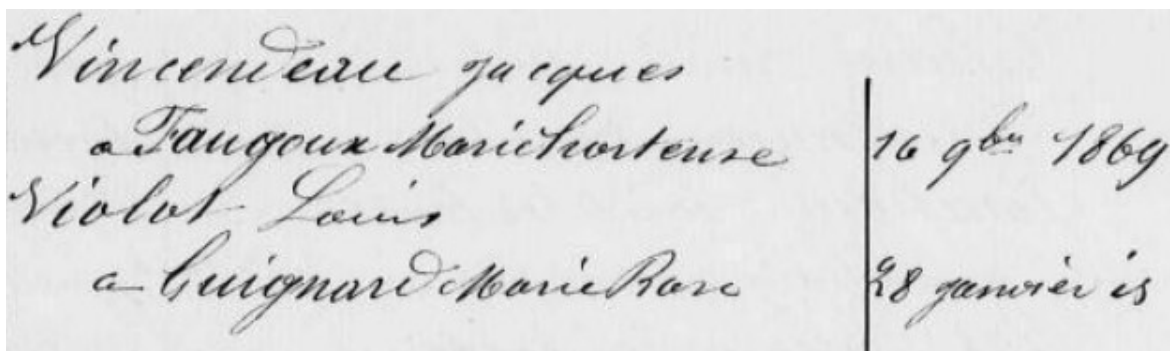 Vincendeau Jacques
a Faugoux Marie hortense 16 9bre 1869
Violot Louis
a Guignard Marie Rose 28 janvier is